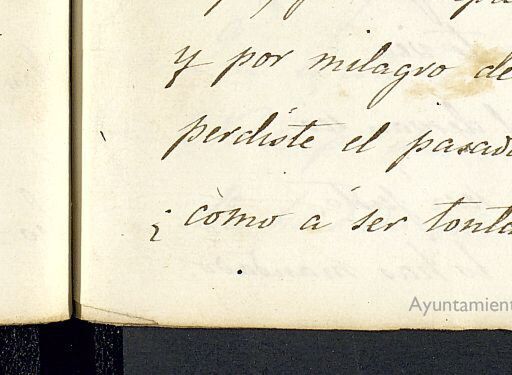 y por milagro de
perdiste el pasad
¿ còmo a ser tonta
Ayuntamient